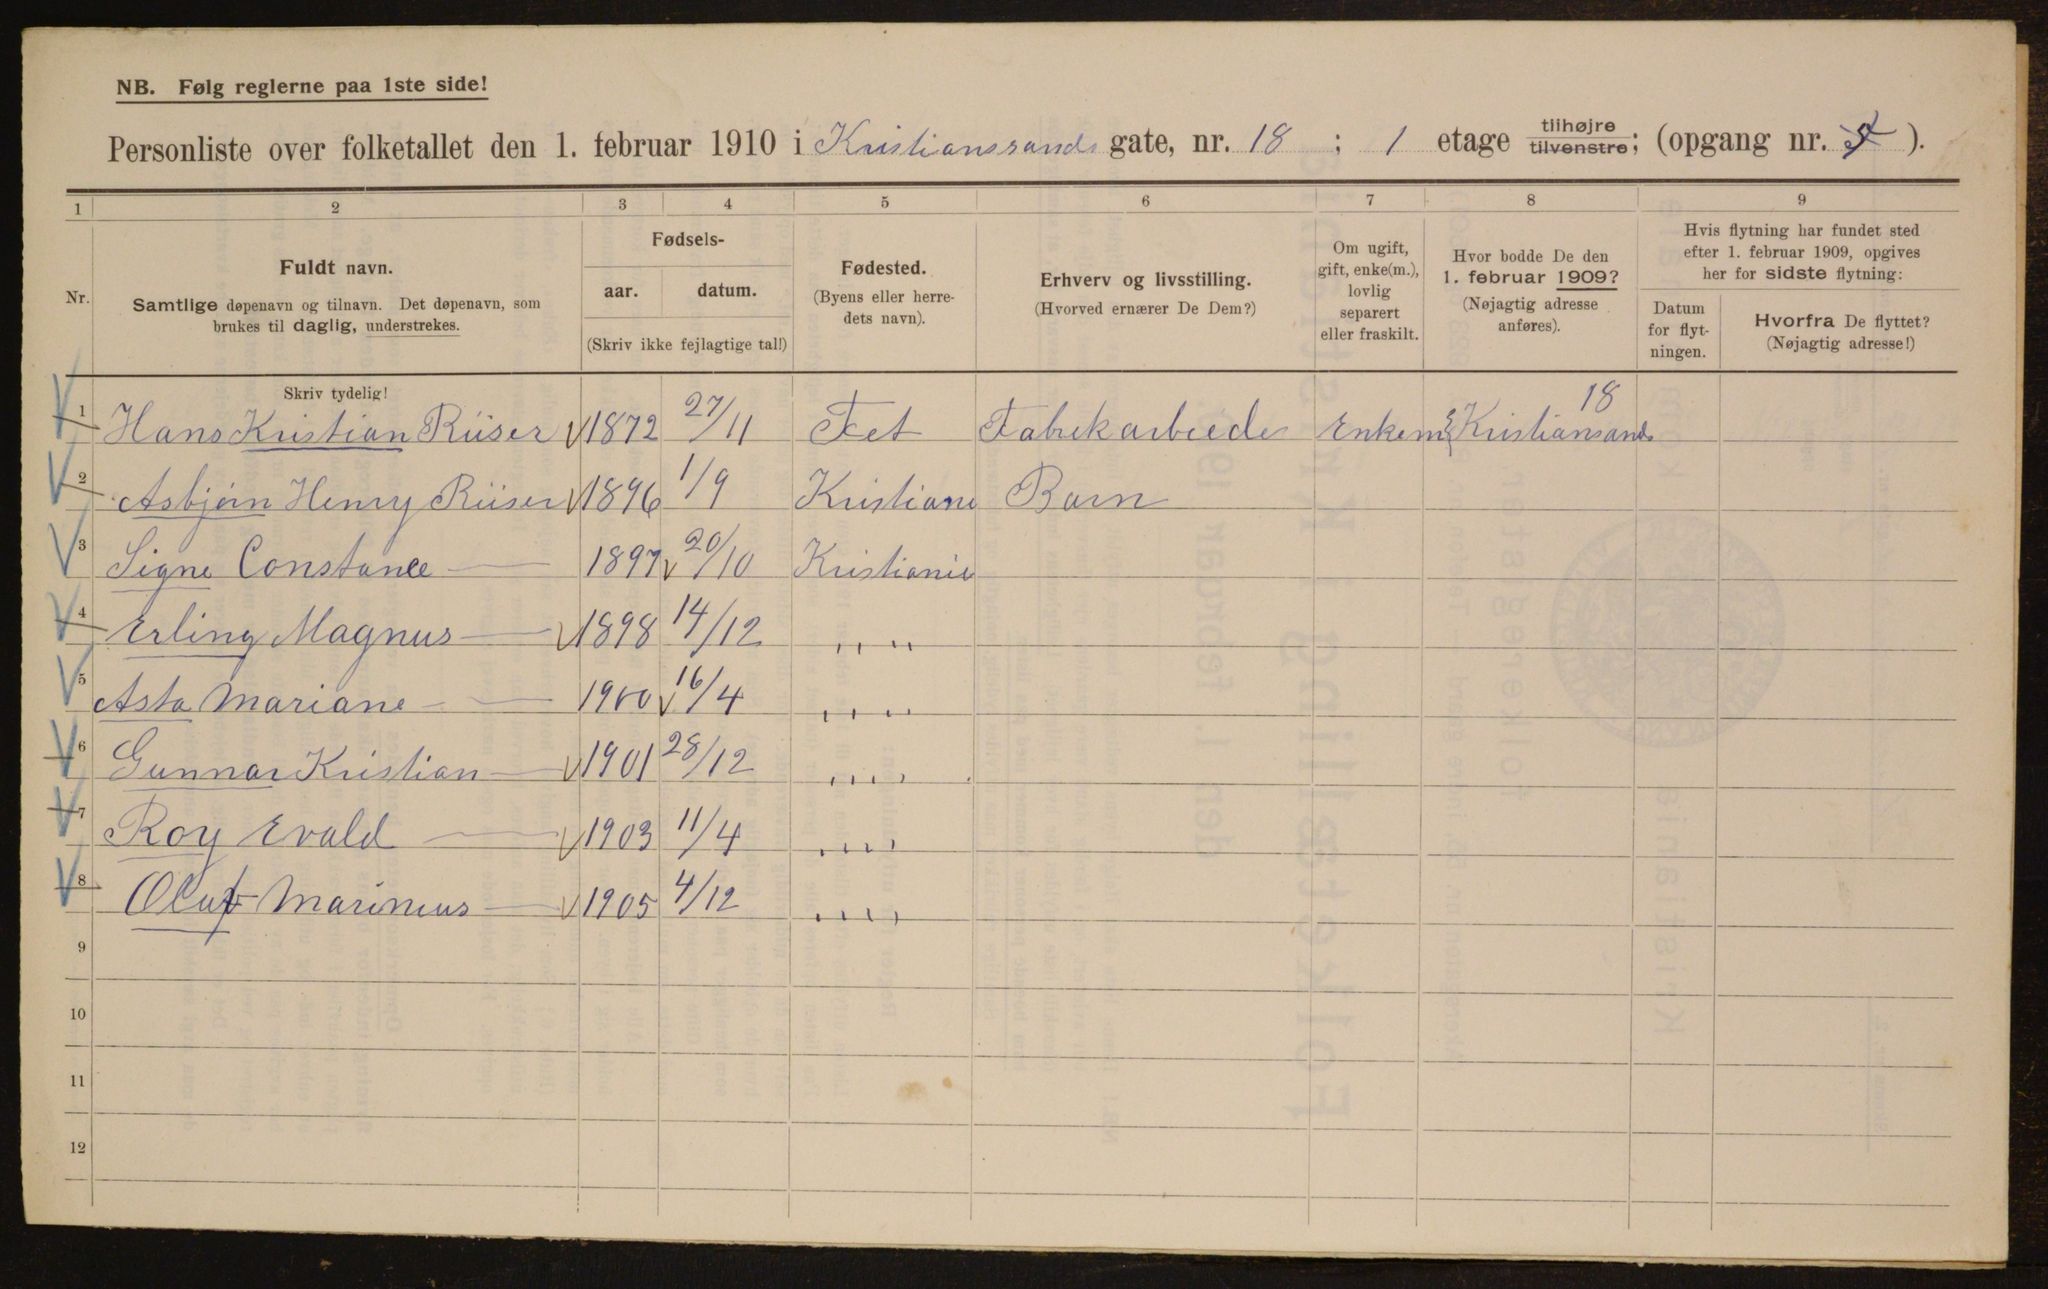 NB. Følg reglerne paa 1ste side!
Personliste over folketallet den 1. februar 1910 i Kristianssands gate, nr. 18 ; 1 etage tilhøjre tilvenstre; (opgang nr. ).
1 2 3 4 5 6 7 8 9
Nr.
Fuldt navn.
Samtlige døpenavn og tilnavn. Det døpenavn, som
brukes til daglig, understrekes.
Fødsels-
aar. datum.
(Skriv ikke fejlagtige tal!)
Fødested.
(Byens eller herre-
dets navn).
Erhverv og livsstilling.
(Hvorved ernærer De Dem?)
Om ugift,
gift, enke(m.),
lovlig
separert
eller fraskilt.
Hvor bodde De den
1. februar 1909?
(Nøjagtig adresse
anføres).
Hvis flytning har fundet sted
efter 1. februar 1909, opgives
her for sidste flytning:
Datum
for flyt-
ningen.
Hvorfra De flyttet?
(Nøjagtig adresse!)
Skriv tydelig!
1 Hans Kristian Riiser 1872 27/11 Fet Fabrekarbeede Enkem Kristiansands 18
2 Asbjørn Henry Riiser 1896 1/9 Kristiani Barn
3 Signe Constance — 1897 20/10 Kristianie
4 Erling Magnus — 1898 14/12 " "
5 Asta Mariane — 1900 16/4 " "
6 Gunnar Kristian — 1901 28/12 " "
7 Roy Evald — 1903 11/4 " "
8 Oluf Marinius — 1905 4/12 " "
9
10
11
12